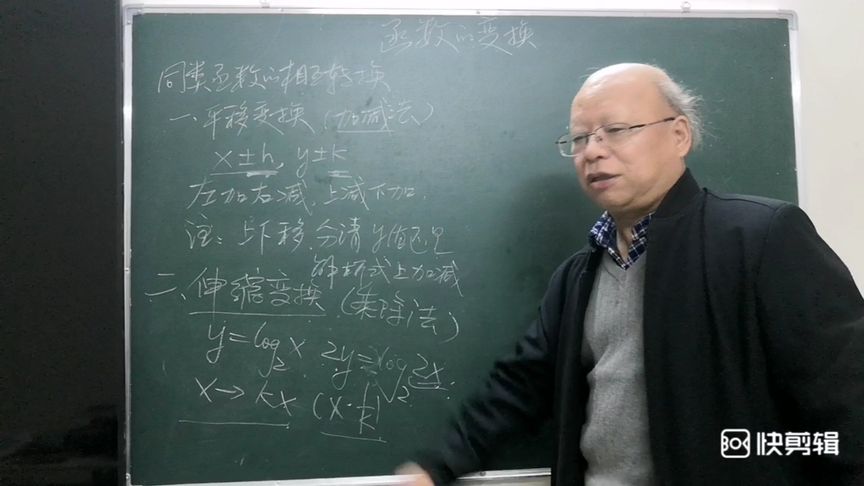 函数的变换
同类函数的相互转换
一、平移变换（加减法）
x±h, y±k
左加右减,上减下加,
注：上下移,分清y值还是
解析式上加减
二、伸缩变换（乘除法）
y=log₂x 2y=log√2 2x.
x→kx (x·1/k)
快剪辑